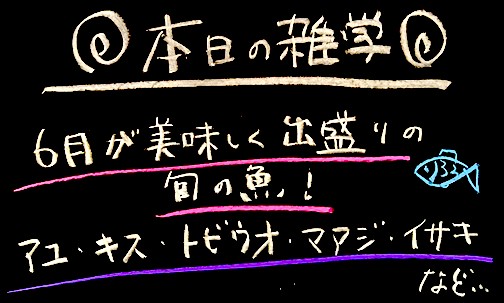 本日の雑学
6月が美味しく出盛りの
旬の魚!
アユ・キス・トビウオ・マアジ・イサキ
など…